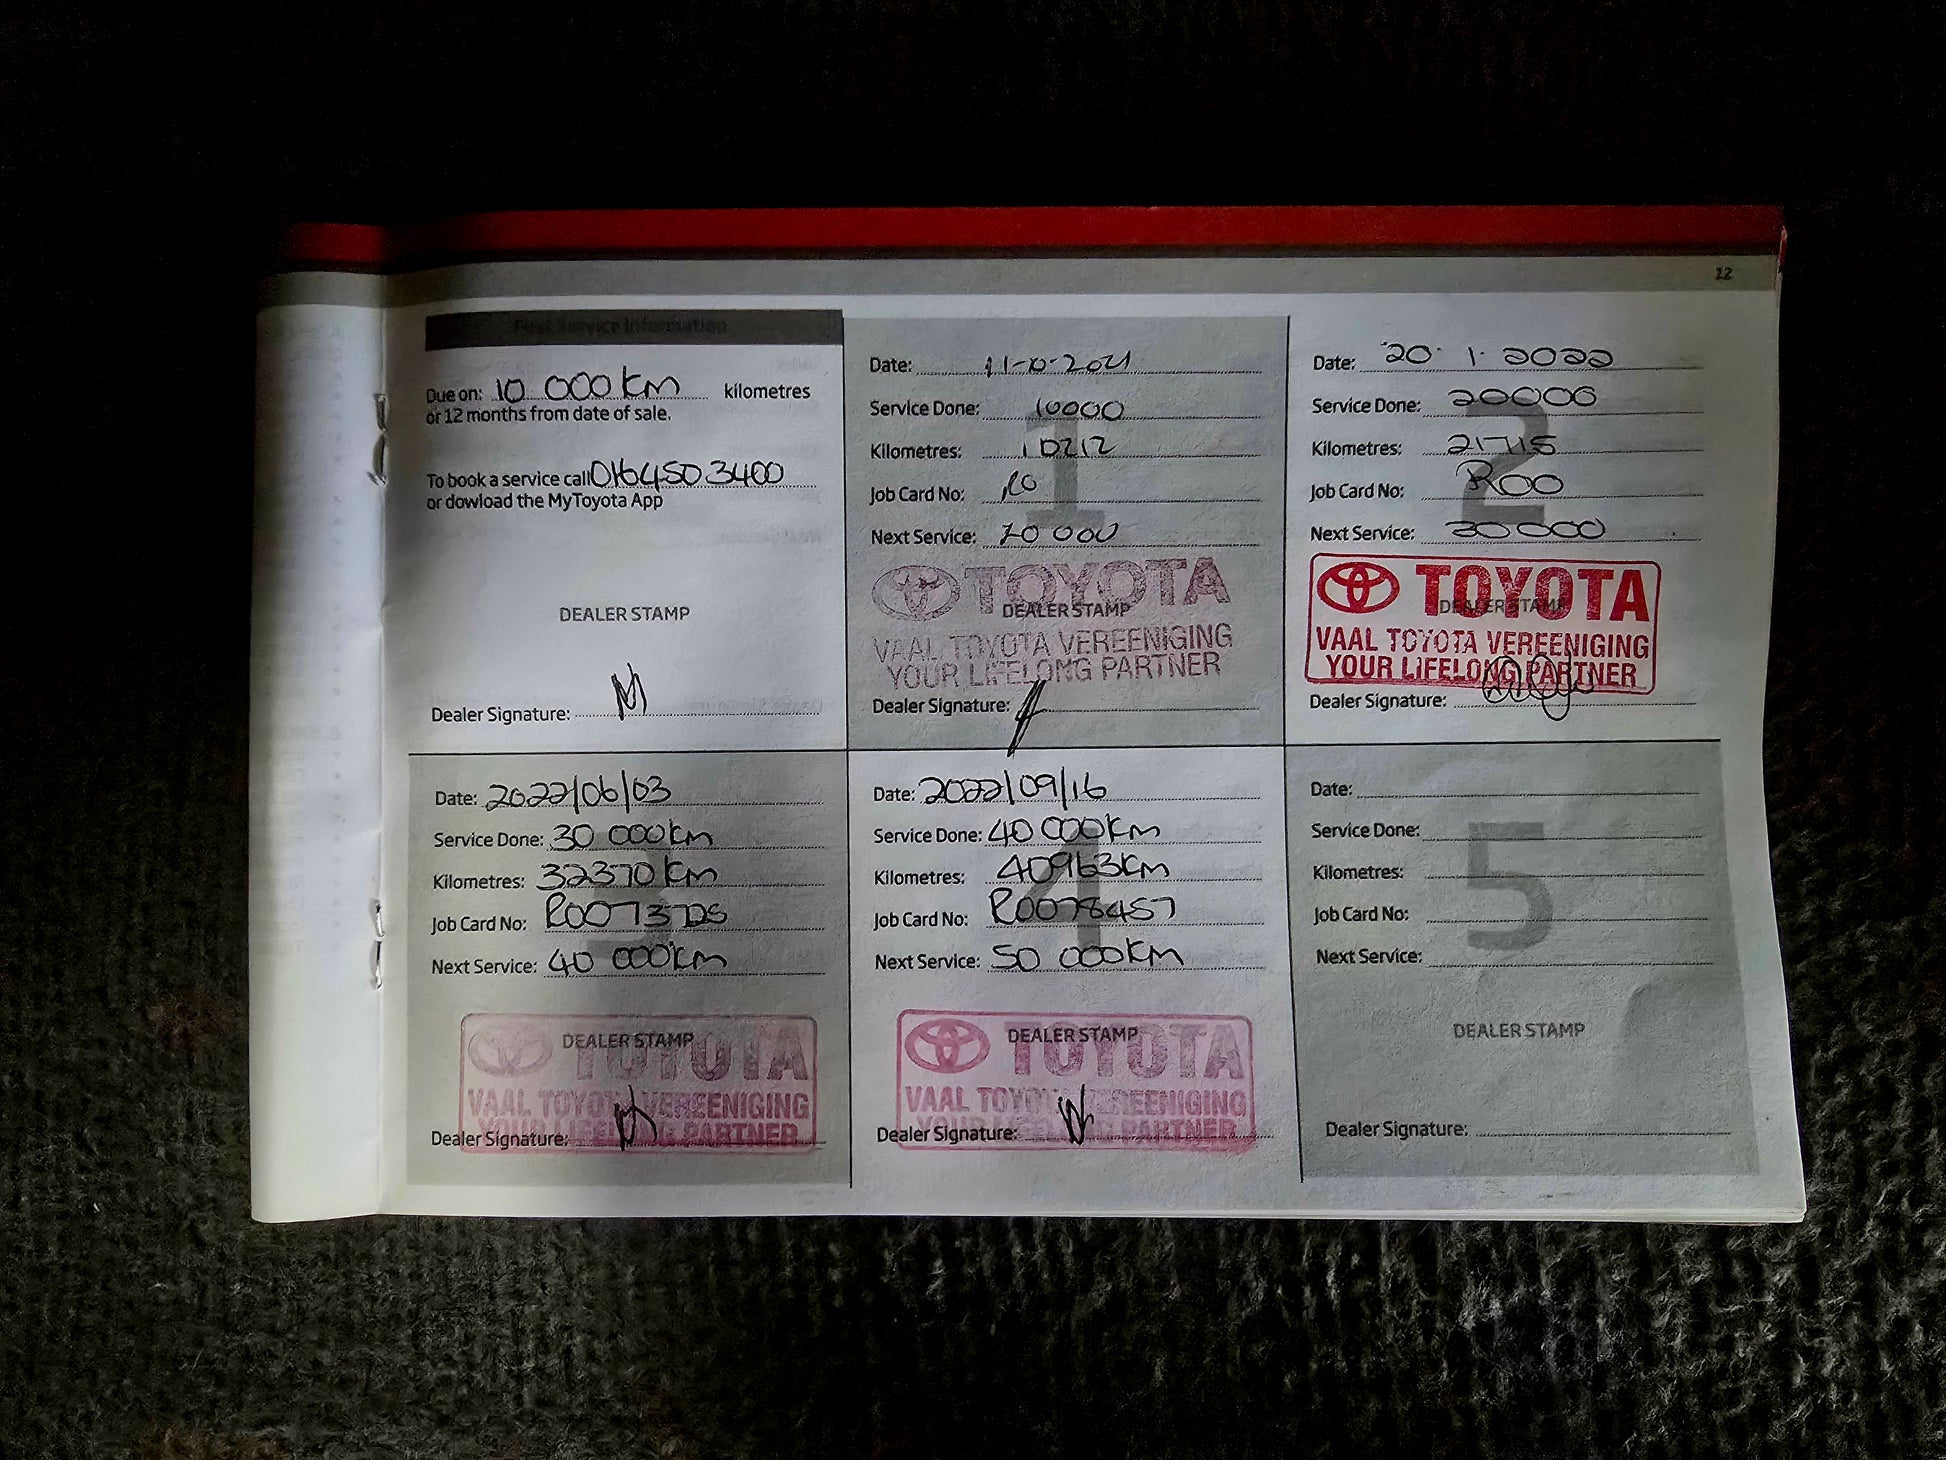 12
First Service Information
Due on: 10 000 km kilometres
or 12 months from date of sale.
To book a service call 016 450 3400
or dowload the MyToyota App
DEALER STAMP
Dealer Signature:
1
Date: 11-10-2021
Service Done: 10000
Kilometres: 10212
Job Card No: RO
Next Service: 20 000
DEALER STAMP
TOYOTA
VAAL TOYOTA VEREENIGING
YOUR LIFELONG PARTNER
Dealer Signature:
2
Date: 20 · 1 · 2022
Service Done: 20000
Kilometres: 21715
Job Card No: ROO
Next Service: 30 000
DEALER STAMP
TOYOTA
VAAL TOYOTA VEREENIGING
YOUR LIFELONG PARTNER
Dealer Signature:
Date: 2022/06/03
Service Done: 30 000 km
Kilometres: 32370 km
Job Card No:
Next Service: 40 000 km
DEALER STAMP
TOYOTA
VAAL TOYOTA VEREENIGING
YOUR LIFELONG PARTNER
Dealer Signature:
4
Date: 2022/09/16
Service Done: 40 000 km
Kilometres: 40963 km
Job Card No: R0078457
Next Service: 50 000 km
DEALER STAMP
TOYOTA
VAAL TOYOTA VEREENIGING
LIFELONG PARTNER
Dealer Signature:
5
Date:
Service Done:
Kilometres:
Job Card No:
Next Service:
DEALER STAMP
Dealer Signature: